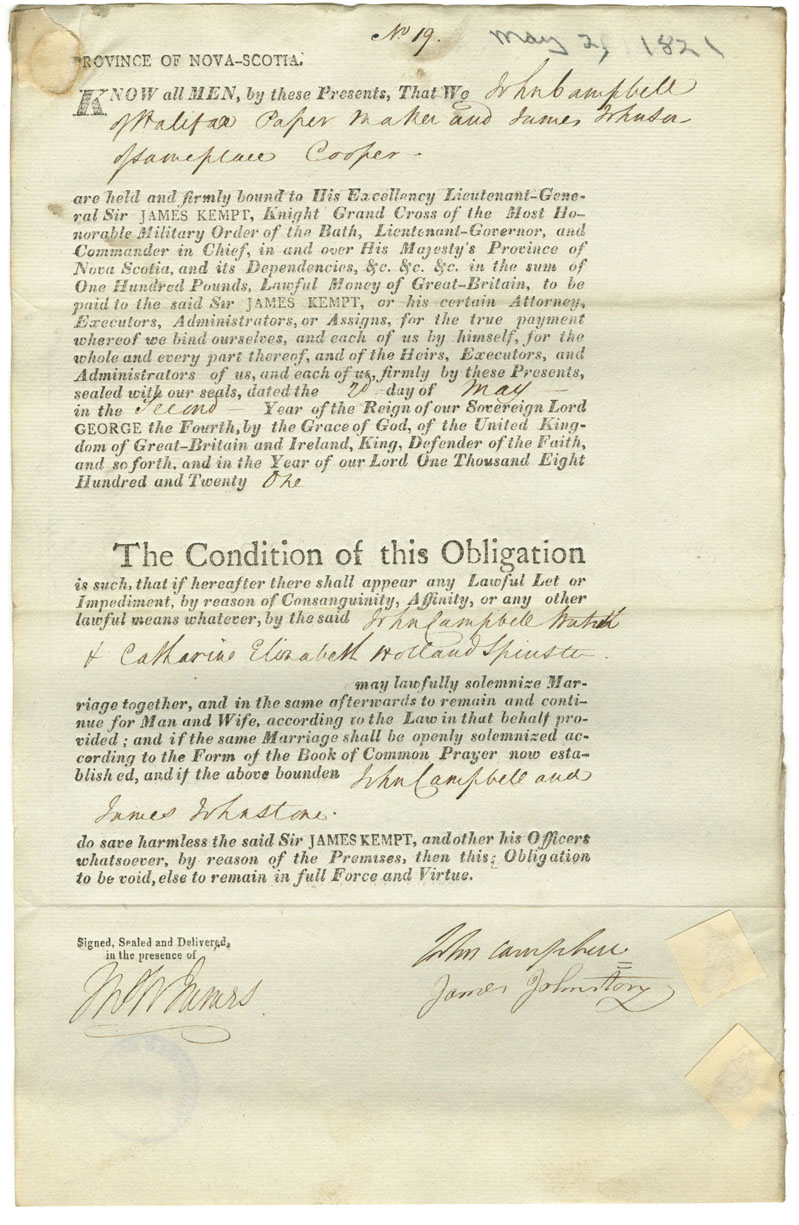 No 19.
May 2, 1821
PROVINCE OF NOVA-SCOTIA.
KNOW all MEN, by these Presents, That We John Campbell
of Halifax Paper Maker and James Johnston
of same place Cooper -
are held and firmly bound to His Excellency Lieutenant-Gene-
ral Sir JAMES KEMPT, Knight Grand Cross of the Most Ho-
norable Military Order of the Bath, Lieutenant-Governor, and
Commander in Chief, in and over His Majesty's Province of
Nova Scotia, and its Dependencies, &c. &c. &c. in the sum of
One Hundred Pounds, Lawful Money of Great-Britain, to be
paid to the said Sir JAMES KEMPT, or his certain Attorney,
Executors, Administrators, or Assigns, for the true payment
whereof we bind ourselves, and each of us by himself, for the
whole and every part thereof, and of the Heirs, Executors, and
Administrators of us, and each of us, firmly by these Presents,
sealed with our seals, dated the 2d day of May -
in the Second - Year of the Reign of our Sovereign Lord
GEORGE the Fourth, by the Grace of God, of the United King-
dom of Great-Britain and Ireland, King, Defender of the Faith,
and so forth, and in the Year of our Lord One Thousand Eight
Hundred and Twenty One
The Condition of this Obligation
is such, that if hereafter there shall appear any Lawful Let or
Impediment, by reason of Consanguinity, Affinity, or any other
lawful means whatever, by the said John Campbell
& Catharine Elizabeth Holland Spinster.
may lawfully solemnize Mar-
riage together, and in the same afterwards to remain and conti-
nue for Man and Wife, according to the Law in that behalf pro-
vided; and if the same Marriage shall be openly solemnized ac-
cording to the Form of the Book of Common Prayer now esta-
blished, and if the above bounden John Campbell and
James Johnstone.
do save harmless the said Sir JAMES KEMPT, and other his Officers
whatsoever, by reason of the Premises, then this; Obligation
to be void, else to remain in full Force and Virtue.
Signed, Sealed and Delivered,
in the presence of
John Campbell
James Johnston